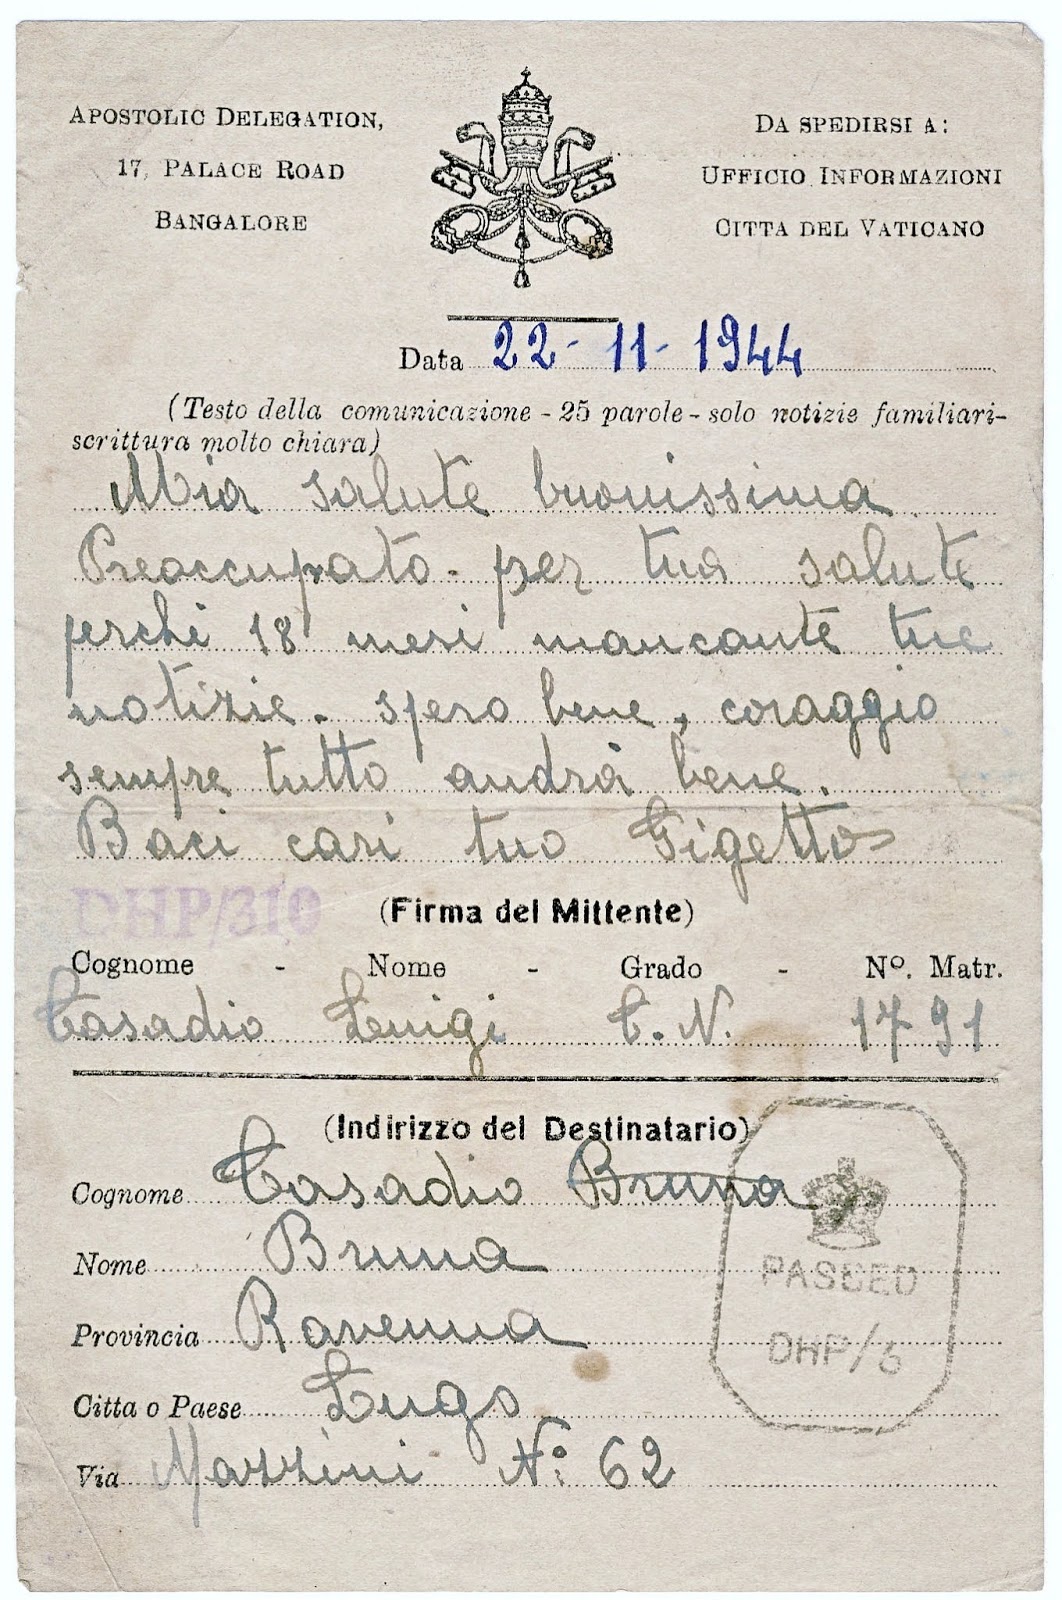 APOSTOLIC DELEGATION,
17, PALACE ROAD
BANGALORE
DA SPEDIRSI A:
UFFICIO INFORMAZIONI
CITTA DEL VATICANO
Data 22-11-1944
(Testo della comunicazione - 25 parole - solo notizie familiari-
scrittura molto chiara)
Mia salute buonissima
Preoccupato. per tua salute
perchè 18 mesi mancante tue
notizie. spero bene, coraggio
sempre tutto andrà bene.
Baci cari tuo Gigetto
DHP/310
(Firma del Mittente)
Cognome - Nome - Grado - Nº. Matr.
Casadio Luigi C.N. 1791
(Indirizzo del Destinatario)
Cognome Casadio Bruna
Nome Bruna
Provincia Ravenna
Citta o Paese Lugo
Via Mazzini Nº 62
PASSED
DHP/3